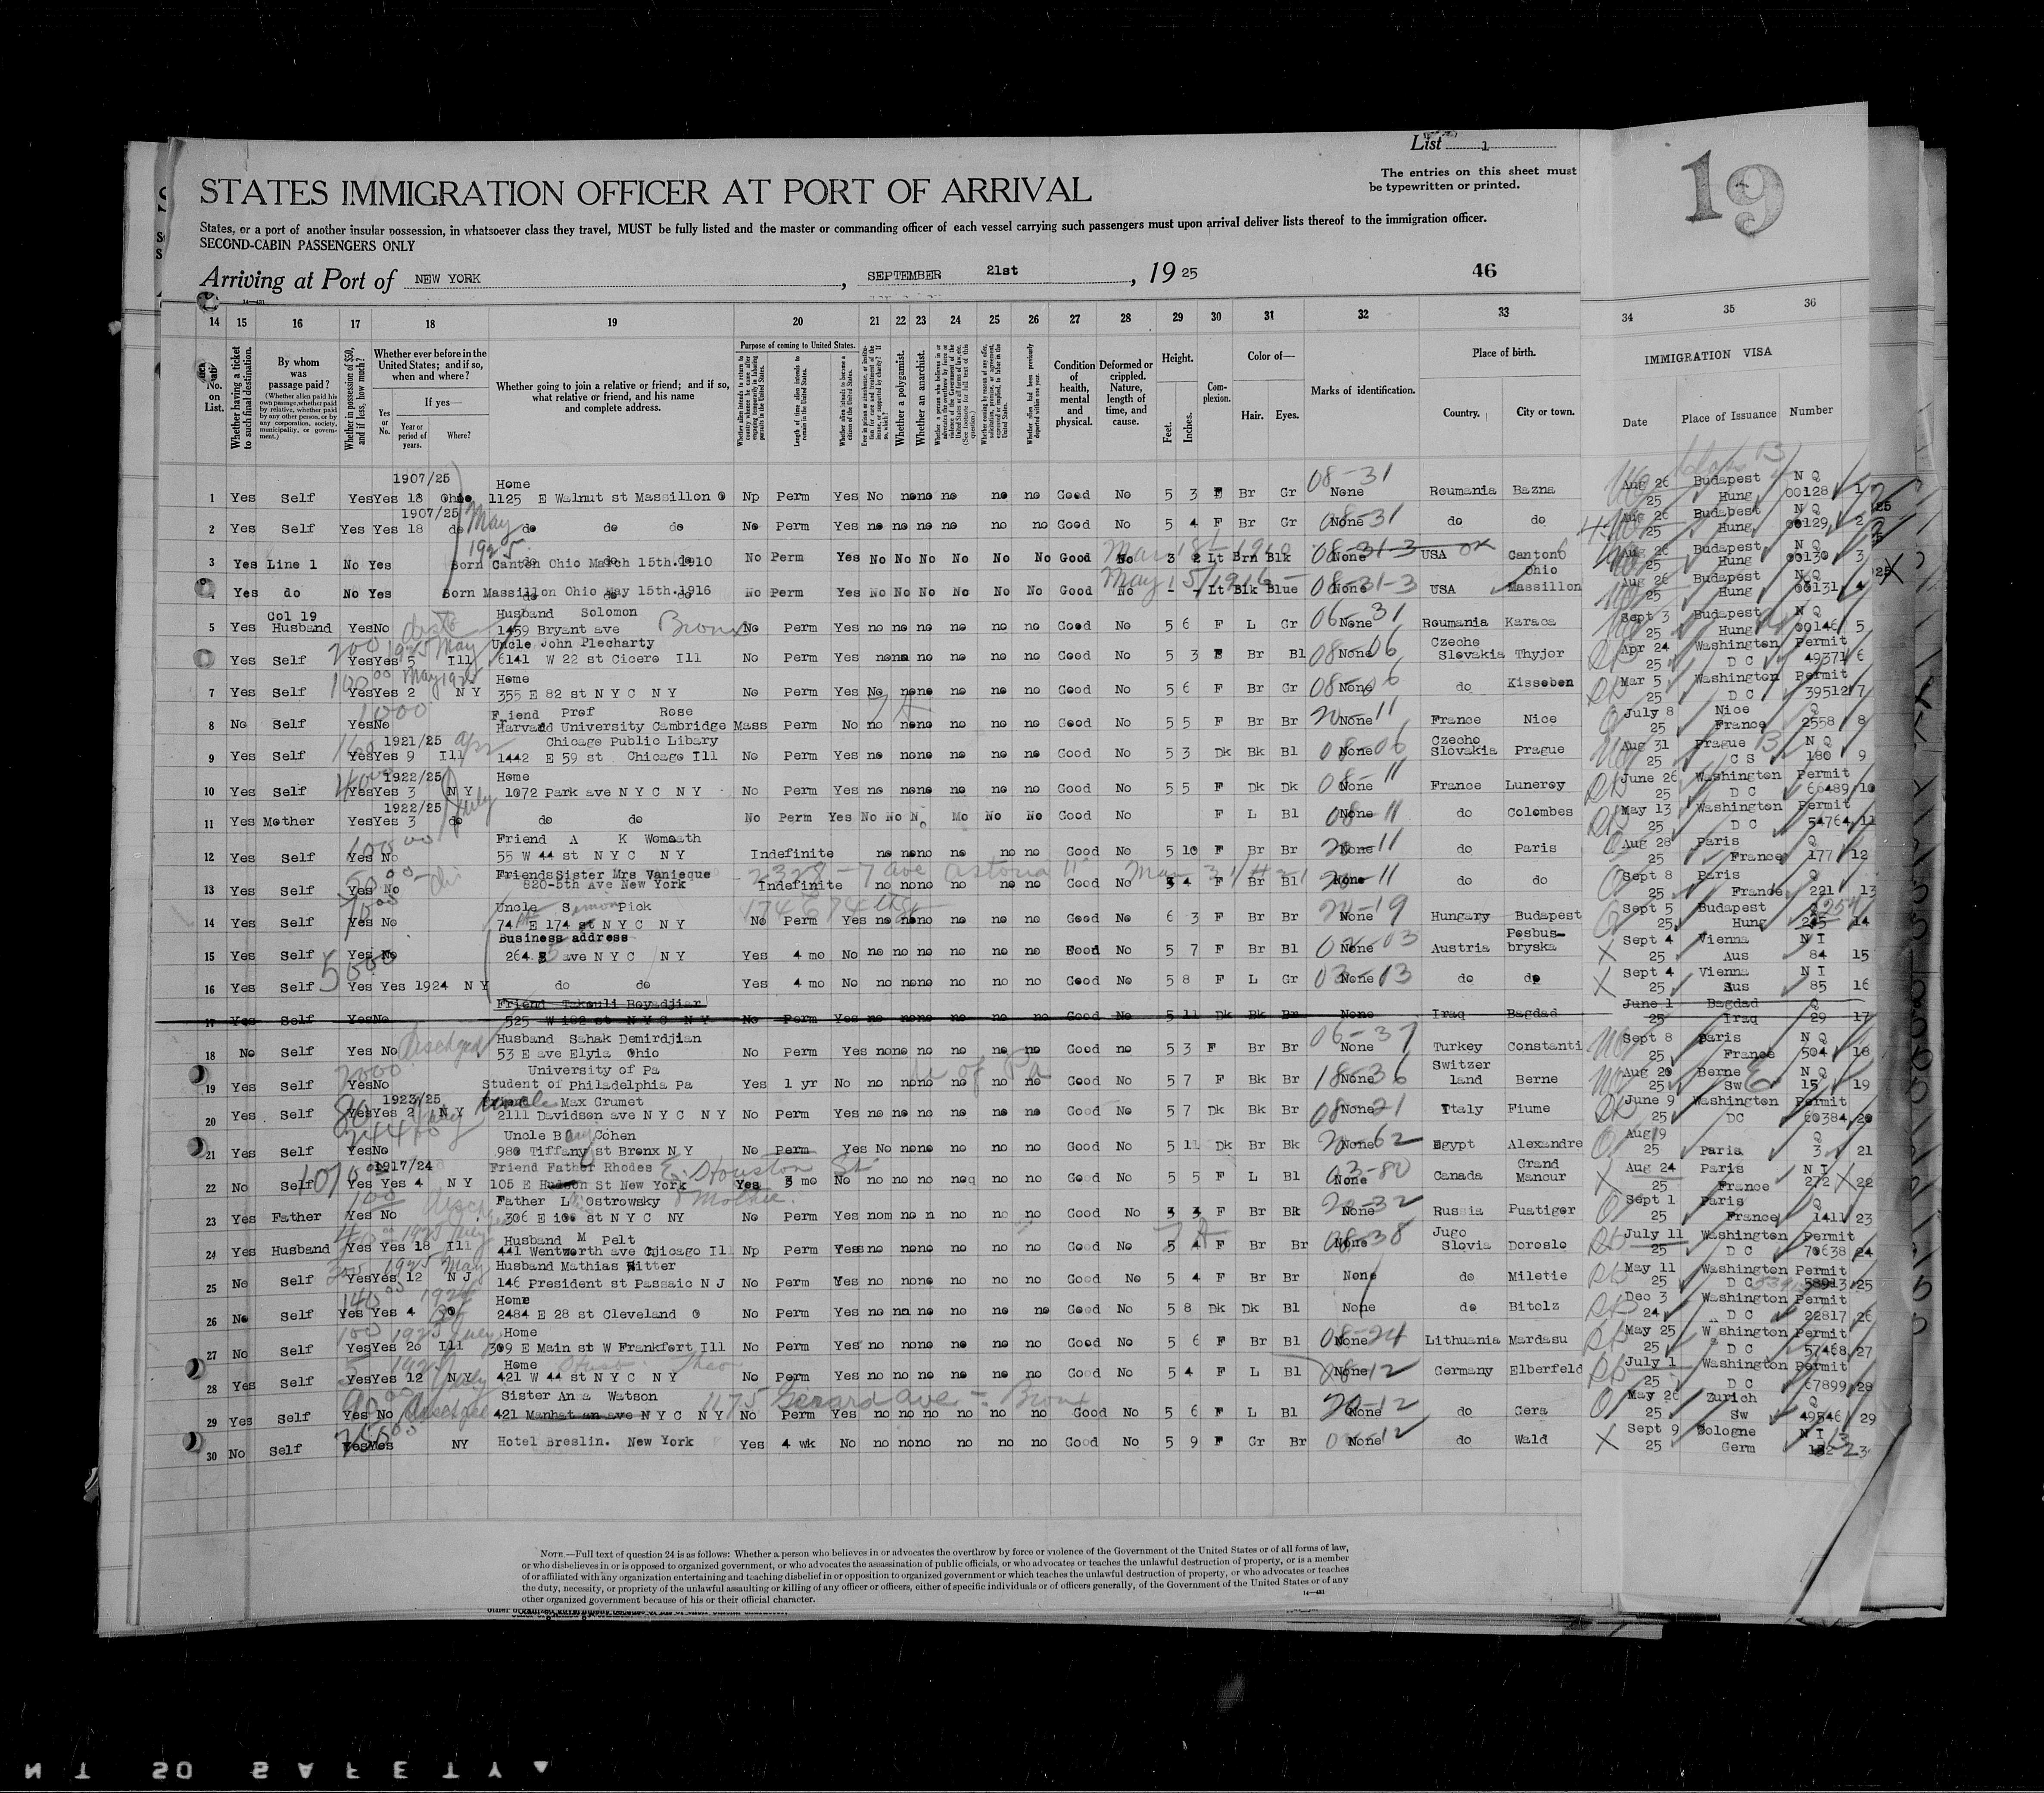 List 1
The entries on this sheet must
be typewritten or printed.
19
STATES IMMIGRATION OFFICER AT PORT OF ARRIVAL
States, or a port of another insular possession, in whatsoever class they travel, MUST be fully listed and the master or commanding officer of each vessel carrying such passengers must upon arrival deliver lists thereof to the immigration officer.
SECOND-CABIN PASSENGERS ONLY
Arriving at Port of NEW YORK, SEPTEMBER 21st, 19 25 46
14 15 16 17 18 19 20 21 22 23 24 25 26 27 28 29 30 31 32 33 34 35 36
No. on List.
Whether having a ticket to such final destination.
By whom was passage paid?
(Whether alien paid his own passage, whether paid by relative, whether paid by any other person, or by any corporation, society, municipality, or government.)
Whether in possession of $50, and if less, how much?
Whether ever before in the United States; and if so, when and where?
Yes or No.
If yes—
Year or period of years.
Where?
Whether going to join a relative or friend; and if so, what relative or friend, and his name and complete address.
Purpose of coming to United States.
Length of time alien intends to remain in the United States.
Whether a polygamist.
Whether an anarchist.
Condition of health, mental and physical.
Deformed or crippled. Nature, length of time, and cause.
Height.
Feet. Inches.
Complexion.
Color of—
Hair. Eyes.
Marks of identification.
Place of birth.
Country. City or town.
IMMIGRATION VISA
Date Place of Issuance Number
1907/25 Home 08-31 Aug 26 Budapest N Q
1 Yes Self Yes Yes 18 Ohio 1125 E Walnut st Massillon O Np Perm Yes No no no no no no Good No 5 3 F Br Gr None Roumania Bazna 25 Hung 00128 1
1907/25 Aug 26 Budapest N Q
2 Yes Self Yes Yes 18 do do do do No Perm Yes no no no no no no Good No 5 4 F Br Gr None do do 25 Hung 00129 2
May 1925
3 Yes Line 1 No Yes Born Canton Ohio March 15th.1910 No Perm Yes No No No No No No Good No 3 2 Lt Brn Blk None USA Canton Ohio Aug 26 25 Budapest Hung N Q 00130 3
4 Yes do No Yes Born Massillon Ohio May 15th.1916 No Perm Yes No No No No No No Good No - - Lt Blk Blue None USA Massillon Aug 26 25 Budapest Hung N Q 00131 4
Col 19 Husband Solomon
5 Yes Husband Yes No 1459 Bryant ave Bronx No Perm Yes no no no no no no Good No 5 6 F L Gr None Roumania Karaca Sept 3 25 Budapest Hung N Q 00146 5
Uncle John Plecharty Czecho
Yes Self Yes Yes 5 Ill 6141 W 22 st Cicero Ill No Perm Yes no no no no no no Good No 5 3 F Br Bl None Slovakia Thyjor Apr 24 25 Washington D C Permit 49371 6
Home
7 Yes Self Yes Yes 2 N Y 355 E 82 st N Y C N Y No Perm Yes No no no no no no Good No 5 6 F Br Gr None do Kisseben Mar 5 25 Washington D C Permit 39512 7
Friend Prof Rose
8 No Self Yes No Harvard University Cambridge Mass Perm No no no no no no no Good No 5 5 F Br Br None France Nice July 8 25 Nice France Q 2558 8
1921/25 Chicago Public Libary Czecho
9 Yes Self Yes Yes 9 Ill 1442 E 59 st Chicago Ill No Perm Yes no no no no no no Good No 5 3 Dk Bk Bl None Slovakia Prague Aug 31 25 Prague C S N Q 180 9
1922/25 Home
10 Yes Self Yes Yes 3 N Y 1072 Park ave N Y C N Y No Perm Yes no no no no no no Good No 5 5 F Dk Dk None France Luneroy June 26 25 Washington D C Permit 66489 10
1922/25
11 Yes Mother Yes Yes 3 do do do No Perm Yes No No N. Mo No No Good No F L Bl None do Colombes May 13 25 Washington D C Permit 54764 11
Friend A K Womsath
12 Yes Self Yes No 55 W 44 st N Y C N Y Indefinite no no no no no no Good No 5 10 F Br Br None do Paris Aug 28 25 Paris France Q 177 12
Friends Sister Mrs Vanieque
13 Yes Self Yes No 820-5th Ave New York Indefinite no no no no no no Good No 5 4 F Br Bl None do do Sept 8 25 Paris France Q 221 13
Uncle Simon Pick
14 Yes Self Yes No 741 E 174 st N Y C N Y No Perm Yes no no no no no no Good No 6 3 F Br Br None Hungary Budapest Sept 5 25 Budapest Hung 14
Business address Posbus-
15 Yes Self Yes No 264 5 ave N Y C N Y Yes 4 mo No no no no no no no Good No 5 7 F Br Bl None Austria bryska Sept 4 25 Vienna Aus N I 84 15
16 Yes Self Yes Yes 1924 N Y do do Yes 4 mo No no no no no no no Good No 5 8 F L Gr None do do Sept 4 25 Vienna Aus N I 85 16
Friend Takouli Boyadjiar
17 Yes Self Yes No 525 W 182 st N Y C N Y No Perm Yes no no no no no no Good No 5 11 Dk Bk Br None Iraq Bagdad June 1 25 Bagdad Iraq Q 29 17
Husband Sahak Demirdjian
18 No Self Yes No 53 E ave Elyia Ohio No Perm Yes no no no no no no Good no 5 3 F Br Br None Turkey Constanti Sept 8 25 Paris France N Q 504 18
University of Pa Switzer
19 Yes Self Yes No Student of Philadelphia Pa Yes 1 yr No no no no no no no Good No 5 7 F Bk Br None land Berne Aug 20 25 Berne Sw N Q 15 19
1923/25 Max Grumet
20 Yes Self Yes Yes 2 N Y 2111 Davidson ave N Y C N Y No Perm Yes no no no no no no Good No 5 7 Dk Bk Br None Italy Fiume June 9 25 Washington DC Permit 60384 20
Uncle B Cohen
21 Yes Self Yes No 980 Tiffany st Bronx N Y No Perm Yes No no no no no no Good No 5 11 Dk Br Bk None Egypt Alexandre Aug 19 25 Paris Q 3 21
1917/24 Friend Father Rhodes E. Houston St. Grand
22 No Self Yes Yes 4 N Y 105 E Hudson St New York Yes 3 mo No no no no no no Good No 5 5 F L Bl None Canada Manour Aug 24 25 Paris France N I 272 22
Father L Ostrowsky
23 Yes Father Yes No 306 E 100 st N Y C NY No Perm Yes nom no n no no no Good No F Br Bk None Russia Puatiger Sept 1 25 Paris France Q 1411 23
Husband M Pelt Jugo
24 Yes Husband Yes Yes 18 Ill 441 Wentworth ave Cjicago Ill Np Perm Yes no no no no no no Good No 5 4 F Br Br None Slovia Doroslo July 11 25 Washington D C Permit 70638 24
Husband Mathias Ritter
25 No Self Yes Yes 12 N J 146 President st Passaic N J No Perm Yes no no no no no no Good No 5 4 F Br Br None do Miletie May 11 25 Washington D C Permit 58913 25
Home
26 No Self Yes Yes 4 2484 E 28 st Cleveland O No Perm Yes no no no no no no Good No 5 8 Dk Dk Bl None do Bitolz Dec 3 24 Washington D C Permit 22817 26
Home
27 No Self Yes Yes 26 Ill 309 E Main st W Frankfort Ill No Perm Yes no no no no no no Good No 5 6 F Br Bl None Lithuania Mardasu May 25 25 Washington D C Permit 57468 27
Home
28 Yes Self Yes Yes 12 N Y 421 W 44 st N Y C N Y No Perm Yes no no no no no no Good No 5 4 F L Bl None Germany Elberfeld July 1 25 Washington D C Permit 67899 28
Sister Anna Watson 1175 Gerard ave - Bronx
29 Yes Self Yes No 421 Manhatan ave N Y C N Y No Perm Yes no no no no no no Good No 5 6 F L Bl None do Gera May 26 25 Zurich Sw Q 49546 29
30 No Self Yes Yes NY Hotel Breslin. New York Yes 4 wk No no no no no no no Good No 5 9 F Gr Br None do Wald Sept 9 25 Cologne Germ N I
NOTE.—Full text of question 24 is as follows: Whether a person who believes in or advocates the overthrow by force or violence of the Government of the United States or of all forms of law,
or who disbelieves in or is opposed to organized government, or who advocates the assassination of public officials, or who advocates or teaches the unlawful destruction of property, or is a member
of or affiliated with any organization entertaining and teaching disbelief in or opposition to organized government or which teaches the unlawful destruction of property, or who advocates or teaches
the duty, necessity, or propriety of the unlawful assaulting or killing of any officer or officers, either of specific individuals or of officers generally, of the Government of the United States or of any
other organized government because of his or their official character.
14-431
SAFETY